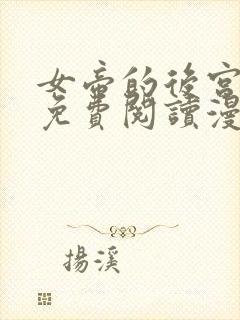 女帝的後宮
免費閱讀漫
揚溪